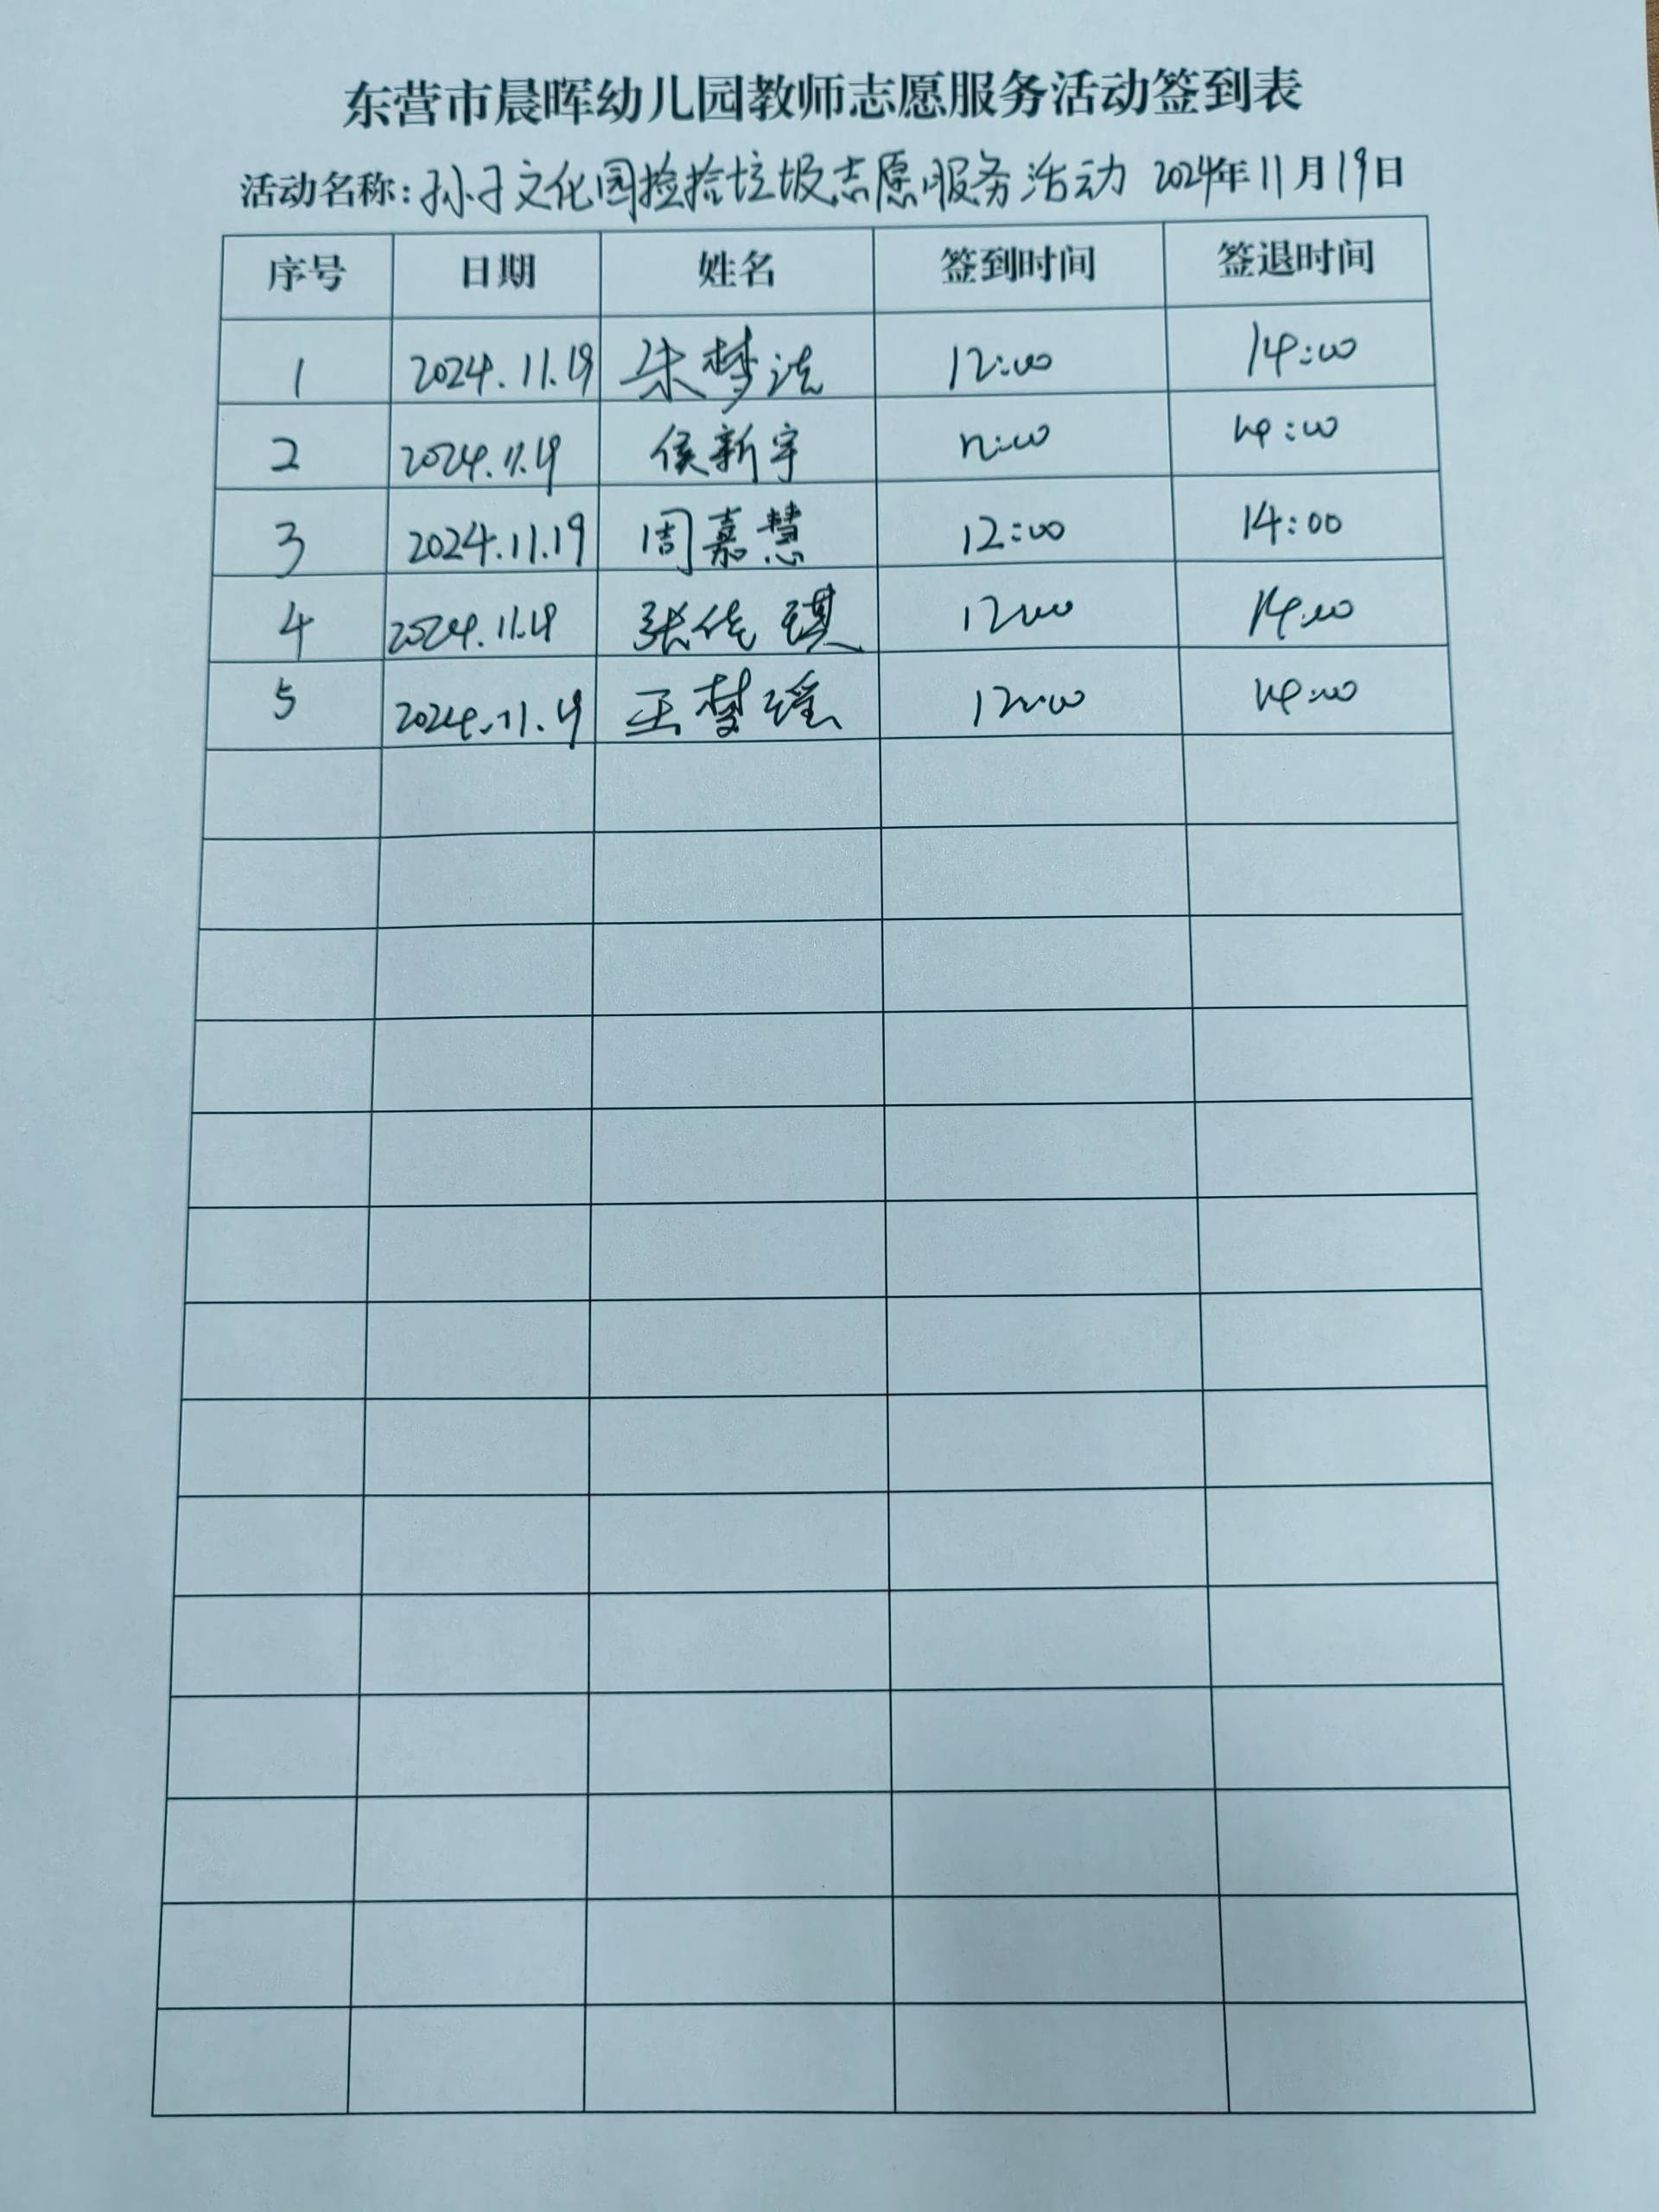 东营市晨晖幼儿园教师志愿服务活动签到表
活动名称:孙子文化园捡拾垃圾志愿服务活动 2024年11月19日
序号 日期 姓名 签到时间 签退时间
1 2024.11.19 朱梦洁 12:00 14:00
2 2024.11.19 侯新宇 12:00 14:00
3 2024.11.19 周嘉慧 12:00 14:00
4 2024.11.19 张佳琪 12:00 14:00
5 2024.11.19 王梦瑶 12:00 14:00